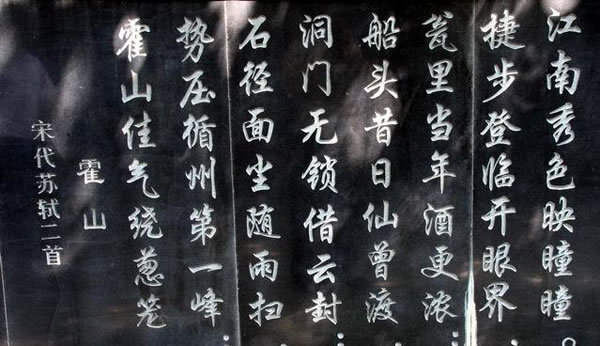 宋代苏轼二首
霍山
霍山佳气绕葱笼
势压循州第一峰
石径面尘随雨扫
洞门无锁借云封
船头昔日仙曾渡
瓮里当年酒更浓
捷步登临开眼界
江南秀色映瞳瞳。